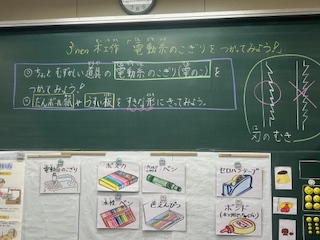 3年 木工作 電動糸のこぎりをつかってみよう!
① ちょっとむずかしい道具の電動糸のこぎり(電のこ)を
つかってみよう!
② だんボール紙やうすい板をすきな形にきってみよう。
刃のむき
電動糸のこぎり
ボスカ
ペン
セロハンテープ
水性ペン
色えんぴつ
ボンド